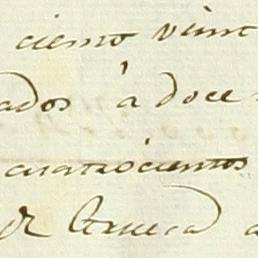 ciento veint
ados à doce
cuatrocientos
de Gruesa a